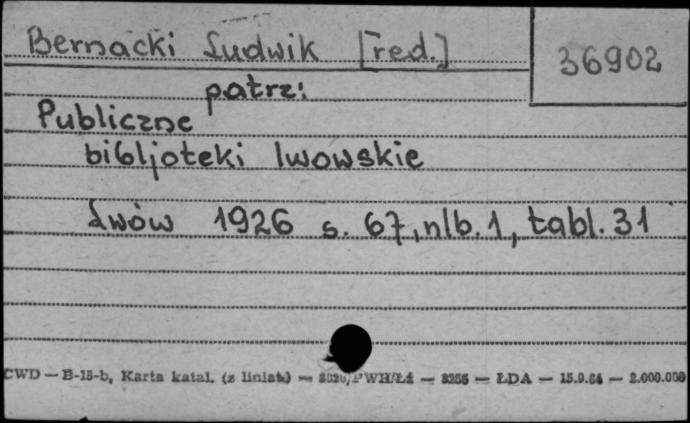 Bernacki Ludwik [red.]
36902
patrz:
Publiczne
bibljoteki lwowskie
Lwów 1926 s. 67, nlb. 1, tabl. 31
CWD — B-15-b, Karta katal. (z liniat.) — PWH/Łź — — ŁDA — 15.9.64 — 2.000.000